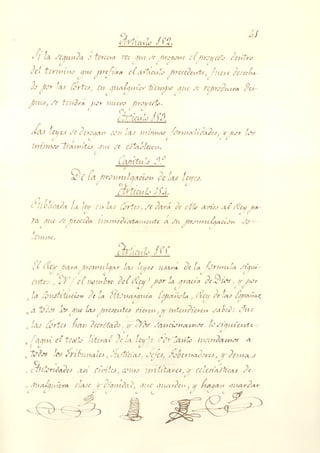 41
Articulo 152.
Si la segunda ó tercera vez que se propone el proyecto dentro
del termino que prefixa el articulo precedente, fuere desecha-
do por las Cortes, en qualquier tiempo que se reproduzca des-
pues, se tendrá por nuevo proyecto.
Articulo 153.
Las leyes se derogan con las mismas formalidades, y por los
mismos tramites que se establecen.
Capitulo 9º
De la promulgacion de las leyes.
Articulo 154.
Publicada la ley en las Cortes, se dará de ello aviso al Rey pa-
ra que se proceda inmediatamente á su promulgacion so-
lemne.
Articulo 155.
El Rey para promulgar las leyes usará de la formula sigui-
ente: N (el nombre del Rey) por la gracia de Dios, y por
la Constitucion de la Monarquia Española, Rey de las Españas,
á todos los que las presentes vieren, y entendieren sabed: Que
las Cortes han decretado, y Nos sancionamos lo siguiente
(aqui el texto literal de la ley): Por tanto mandamos á
todos los Tribunales, Justicias, Gefes, Gobernadores, y demas
Autoridades asi civiles, como militares, y eclesiasticas de
qualquiera clase y dignidad, que guarden, y hagan guardar